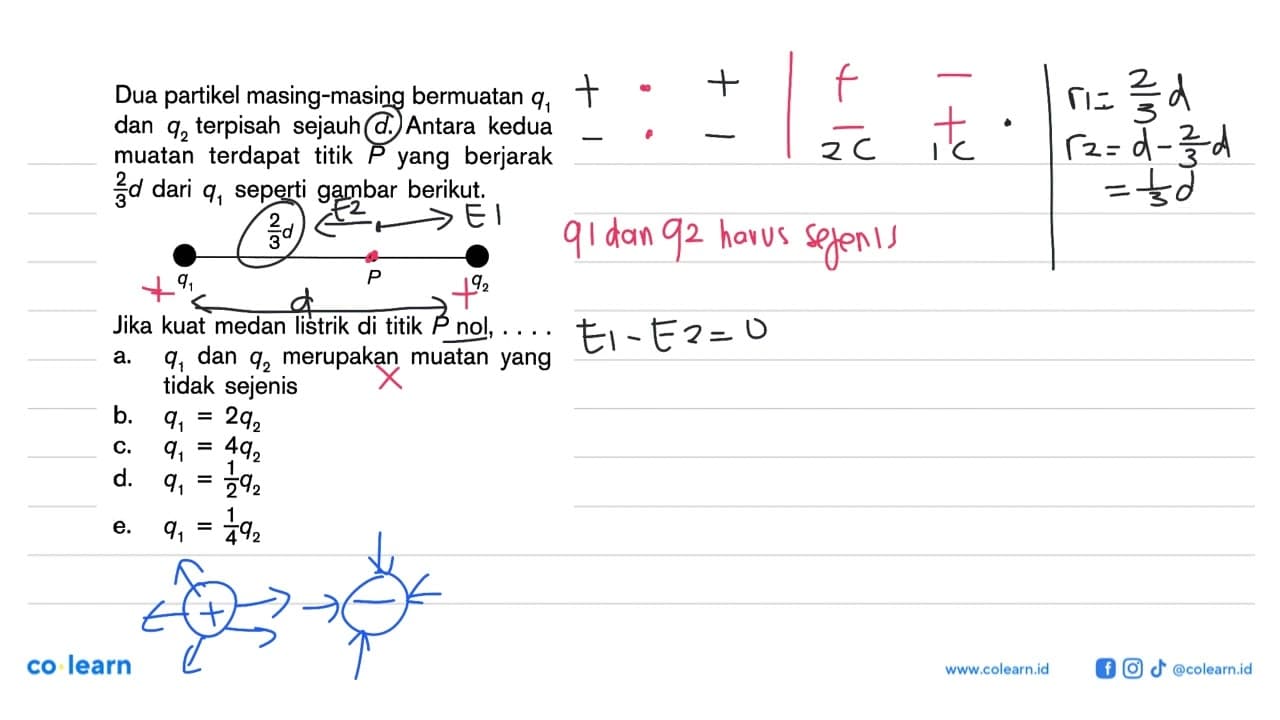 Dua partikel masing-masing bermuatan q₁
dan q₂ terpisah sejauh d. Antara kedua
muatan terdapat titik P yang berjarak
2/3 d dari q₁ seperti gambar berikut.
E2
E1
2/3 d
q₁
P
q₂
+
+
d
Jika kuat medan listrik di titik P nol, . . . .
a. q₁ dan q₂ merupakan muatan yang
tidak sejenis
b. q₁ = 2q₂
c. q₁ = 4q₂
d. q₁ = 1/2 q₂
e. q₁ = 1/4 q₂
+
−
+ · +
− · −
+ −
− + ·
2C 1C
r1 = 2/3 d
r2 = d − 2/3 d
= 1/3 d
q1 dan q2 harus sejenis
E1 − E2 = 0
co·learn
www.colearn.id
@colearn.id